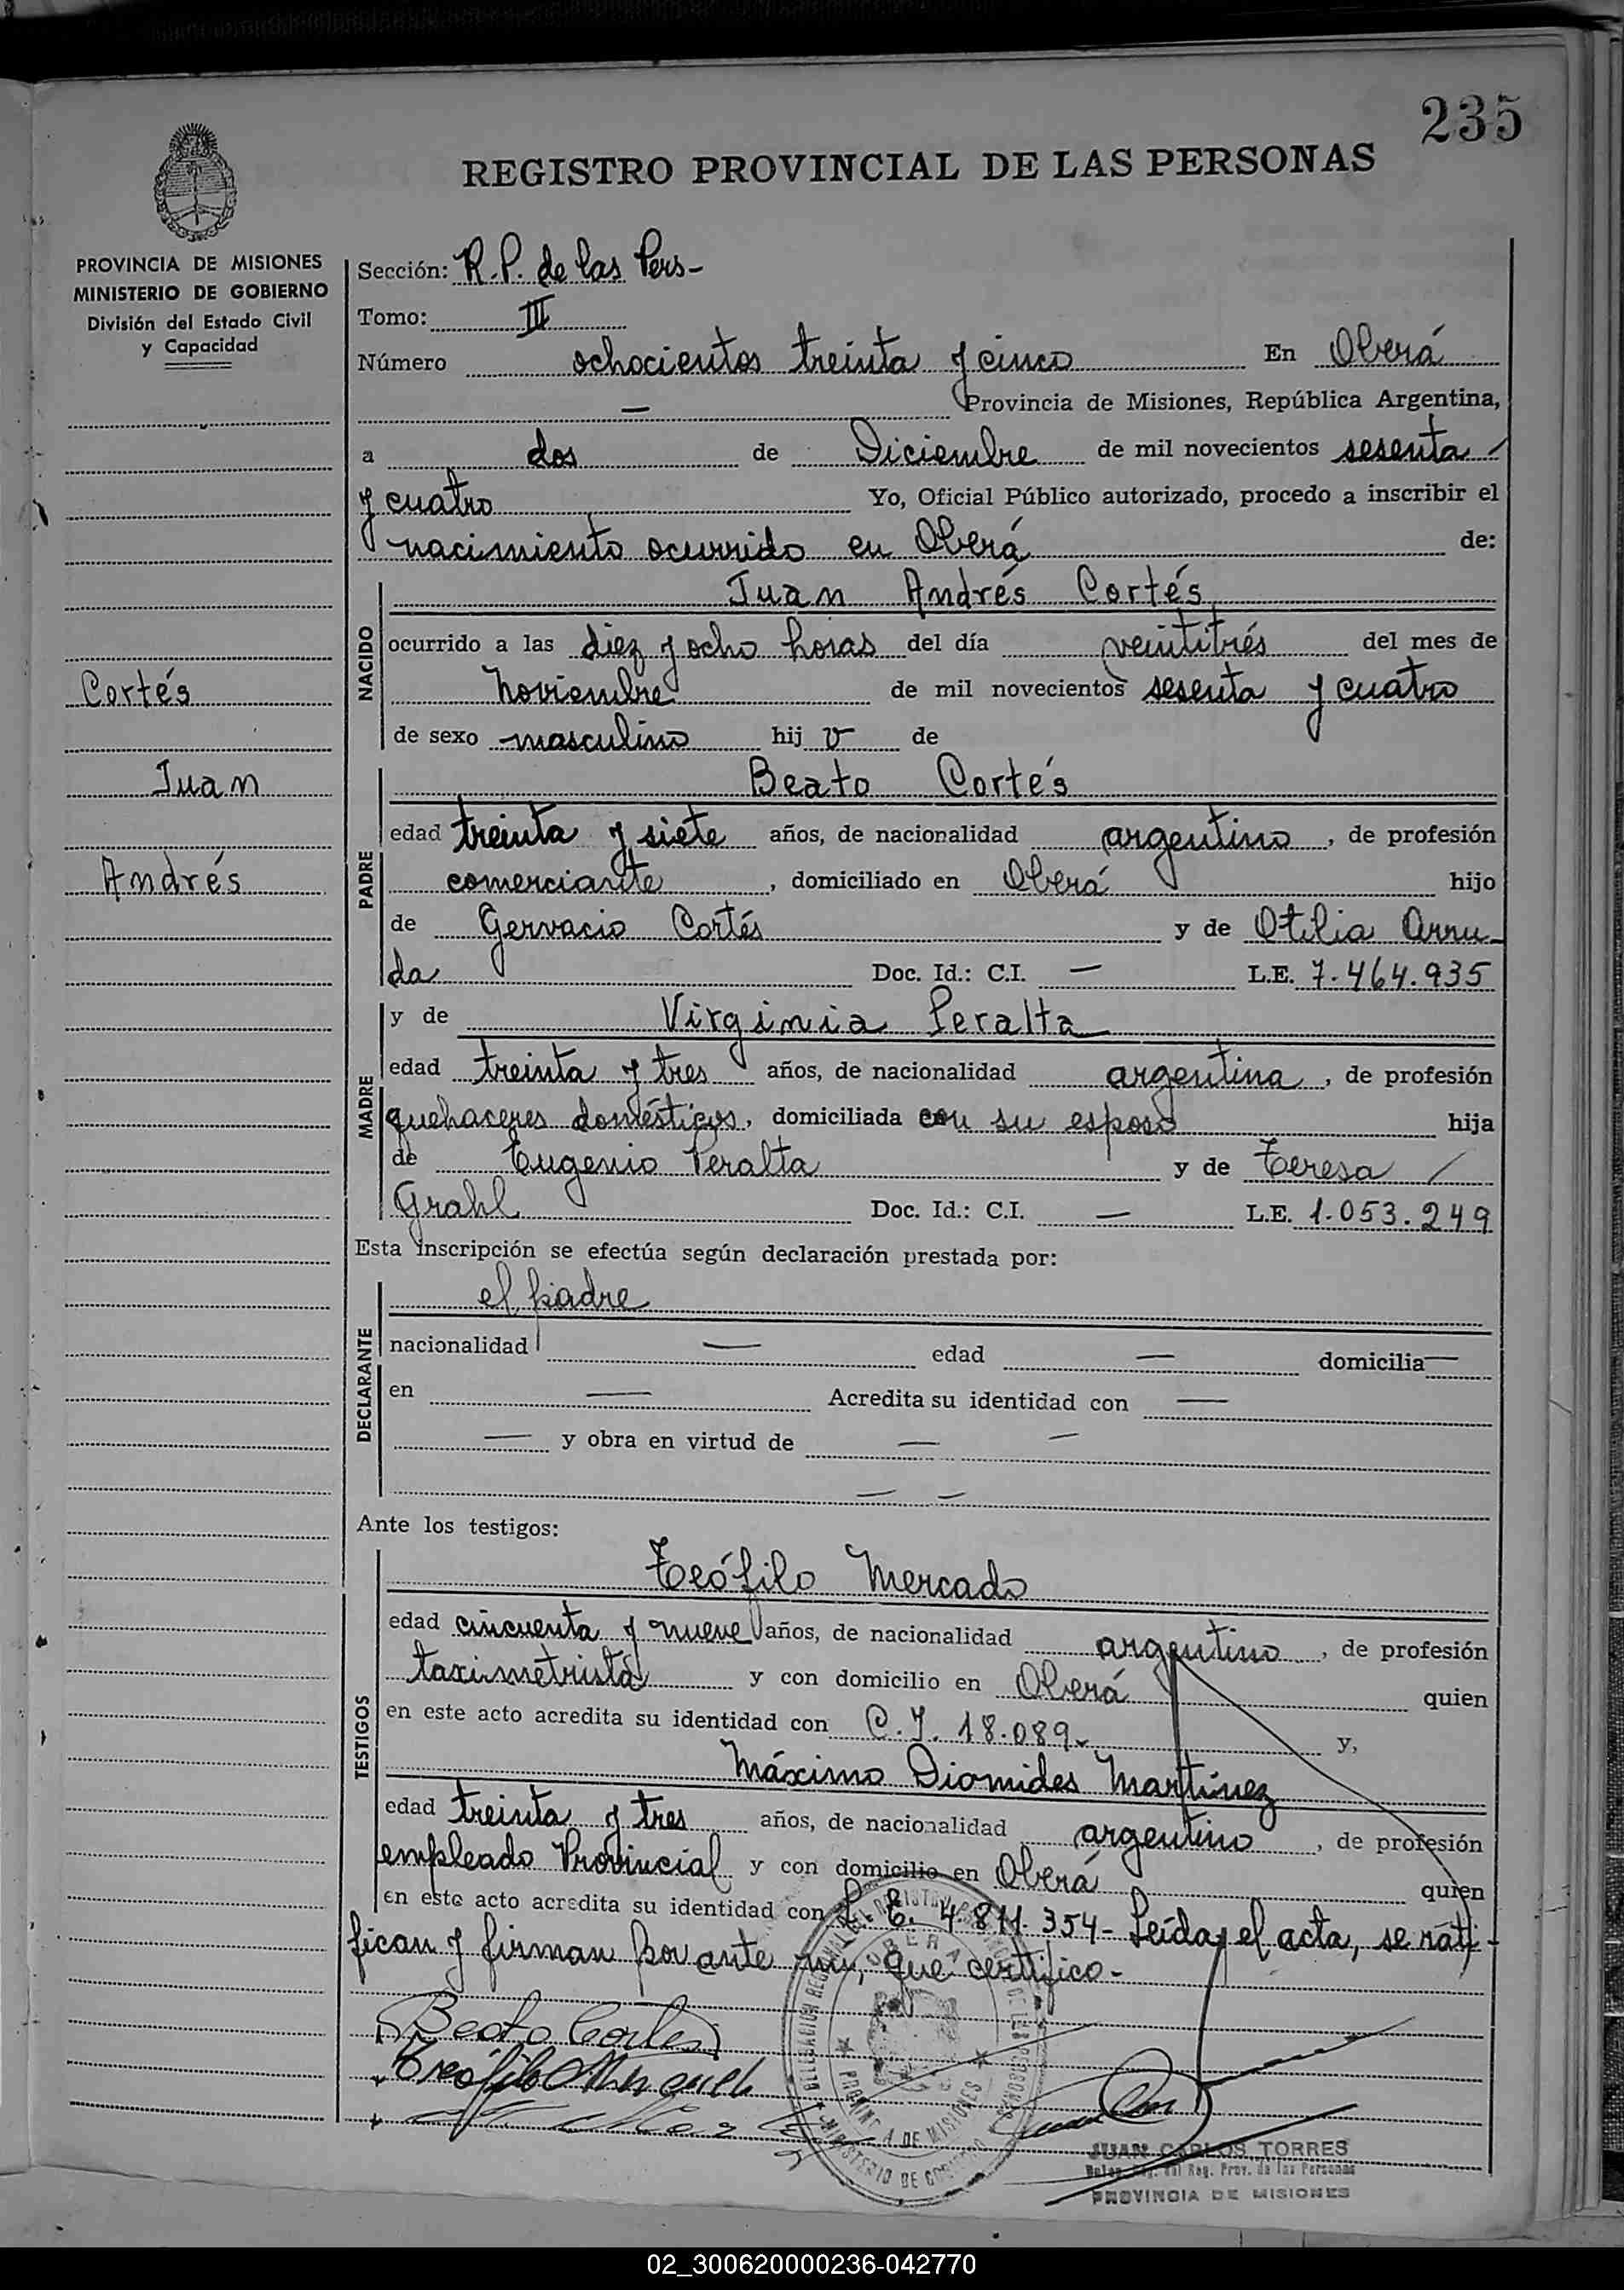 235
REGISTRO PROVINCIAL DE LAS PERSONAS
PROVINCIA DE MISIONES
MINISTERIO DE GOBIERNO
División del Estado Civil
y Capacidad
Cortés
Juan
Andrés
Sección: R.P. de las Pers-
Tomo: III
Número ochocientos treinta y cinco En Oberá
— Provincia de Misiones, República Argentina,
a dos de Diciembre de mil novecientos sesenta
y cuatro Yo, Oficial Público autorizado, procedo a inscribir el
nacimiento ocurrido en Oberá de:
NACIDO
Juan Andrés Cortés
ocurrido a las diez y ocho horas del día veintitrés del mes de
Noviembre de mil novecientos sesenta y cuatro
de sexo masculino hijo de
PADRE
Beato Cortés
edad treinta y siete años, de nacionalidad argentino, de profesión
comerciante, domiciliado en Oberá hijo
de Gervacio Cortés y de Otilia Arru-
da Doc. Id.: C.I. — L.E. 7.464.935
MADRE
y de Virginia Peralta
edad treinta y tres años, de nacionalidad argentina, de profesión
quehaceres domésticos, domiciliada con su esposo hija
de Eugenio Peralta y de Teresa /
Grahl Doc. Id.: C.I. — L.E. 1.053.249
Esta inscripción se efectúa según declaración prestada por:
DECLARANTE
el padre
nacionalidad — edad — domicilia —
en — Acredita su identidad con —
— y obra en virtud de — —
— —
Ante los testigos:
TESTIGOS
Teófilo Mercado
edad cincuenta y nueve años, de nacionalidad argentino, de profesión
taximetrista y con domicilio en Oberá quien
en este acto acredita su identidad con C.I. 18.089- y,
Máximo Diomides Martínez
edad treinta y tres años, de nacionalidad argentino, de profesión
empleado Provincial y con domicilio en Oberá quien
en este acto acredita su identidad con L.E. 4.811.354- Leída el acta, se rati-
fican y firman por ante mi, que certifico-
Beato Cortes
Teófilo
OBERA
PROVINCIA DE MISIONES
MINISTERIO DE GOBIERNO
JUAN CARLOS TORRES
Reg. Prov. de las Personas
PROVINCIA DE MISIONES
02_300620000236-042770